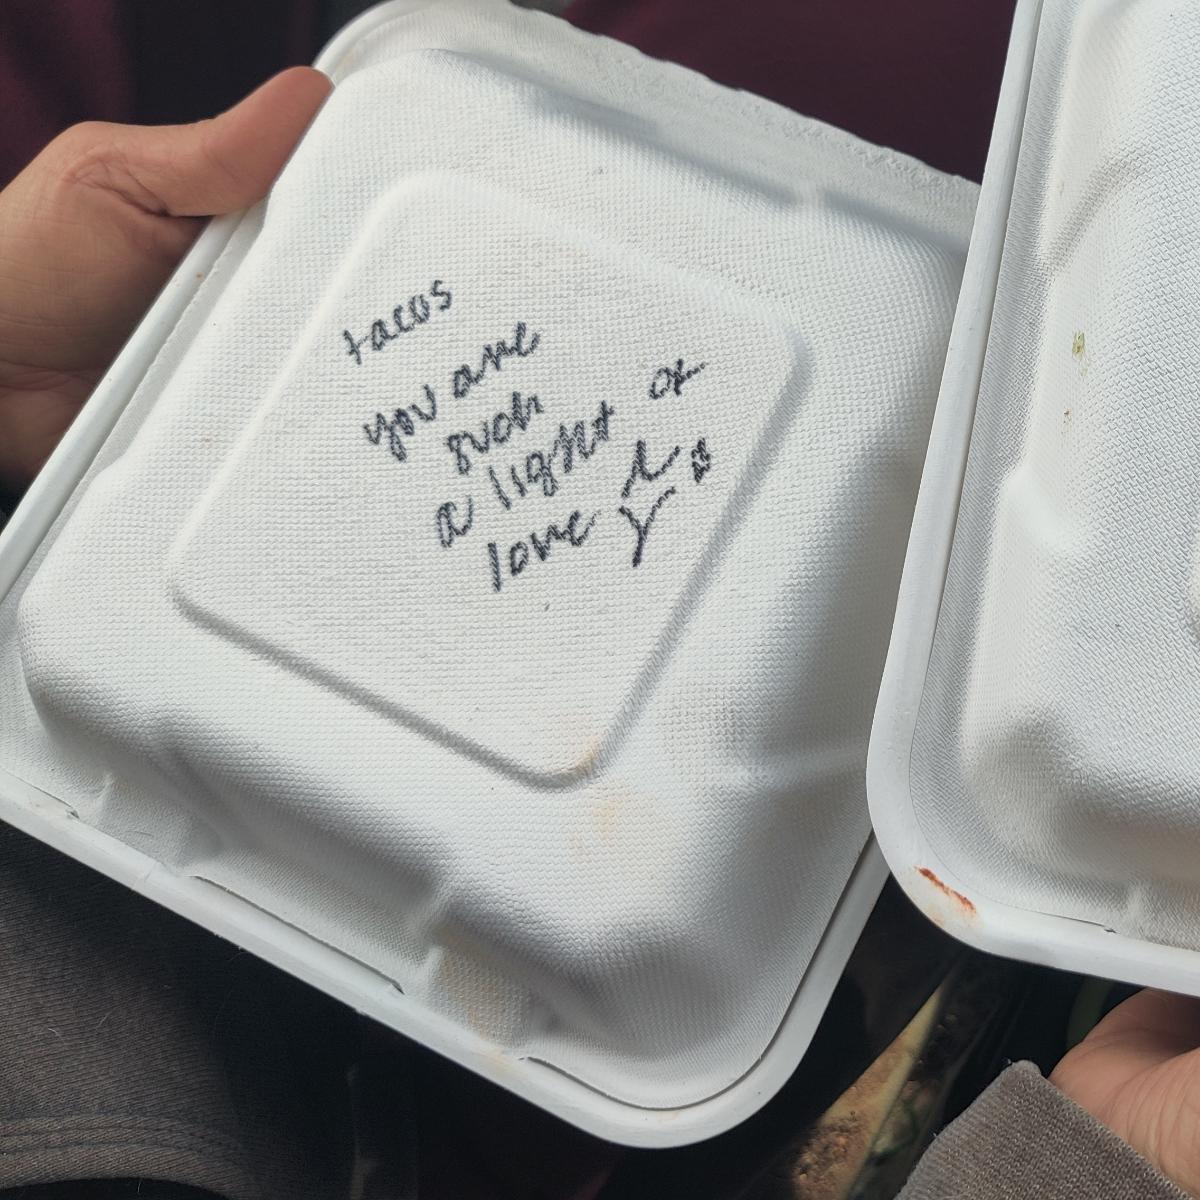 tacos
you are
such
a light or
love